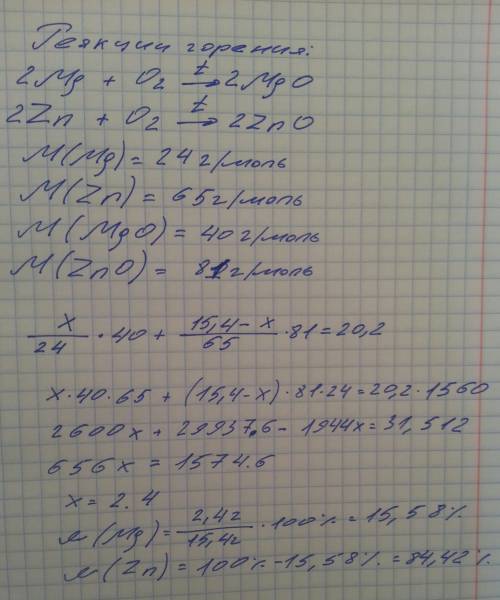 Реякции горения:
2Mg + O₂ →t 2MgO
2Zn + O₂ →t 2ZnO
M(Mg) = 24 г/моль
M(Zn) = 65 г/моль
M(MgO) = 40 г/моль
M(ZnO) = 81 г/моль
x/24 · 40 + 15,4 - x/65 · 81 = 20,2
x·40·65 + (15,4-x)·81·24 = 20,2·1560
2600x + 29937.6 - 1944x = 31,512
656x = 1574.6
x = 2.4
м(Mg) = 2,4г/15,4г · 100% = 15,58%
м(Zn) = 100% - 15,58% = 84,42%